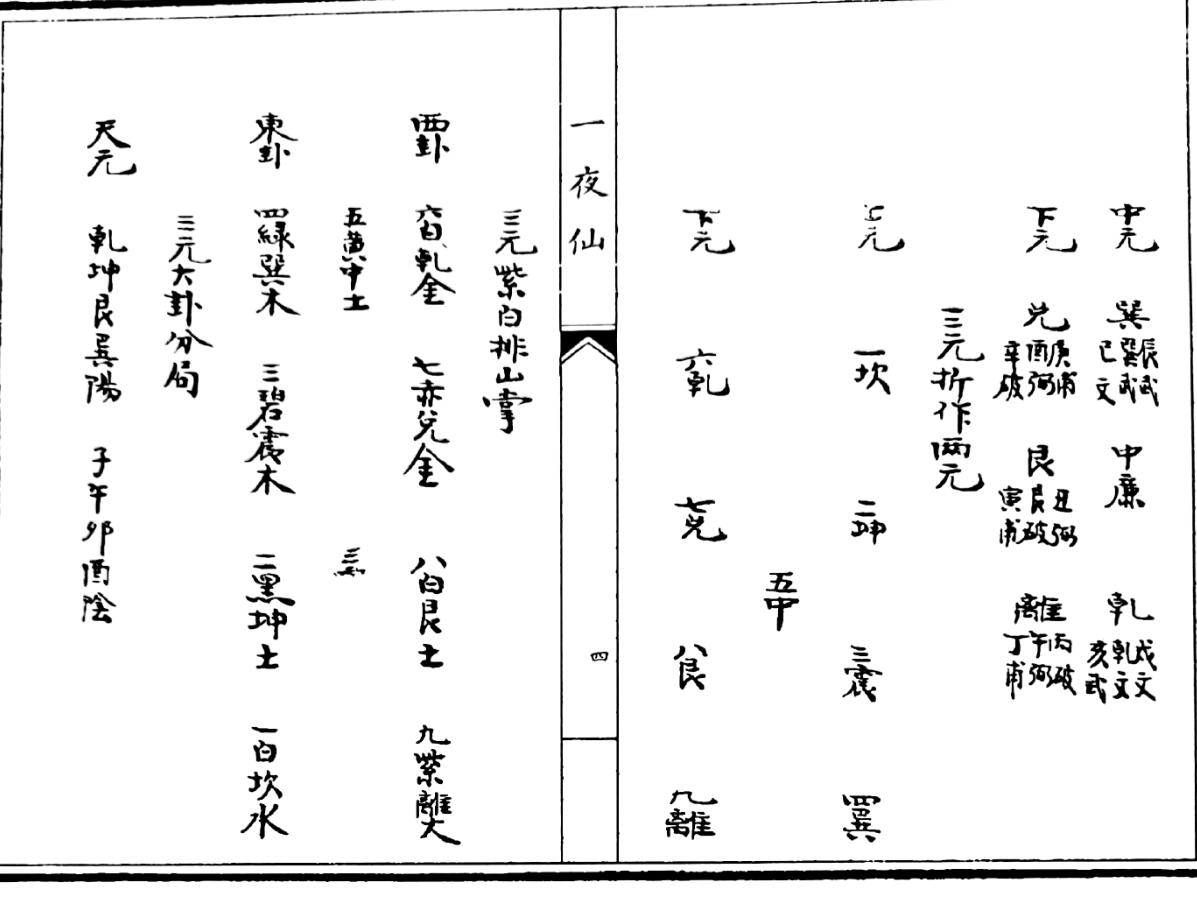 中元 巽 辰武 巽武 巳文 中廉 乾 戌文 乾文 亥武
下元 兌 庚甫 酉弼 辛破 艮 丑弼 艮破 寅甫 離 丙破 午弼 丁甫
三元折作兩元
上元 一坎 二坤 三震 四巽
五中
下元 六乾 七兌 八艮 九離
一夜仙 四
三元紫白排山掌
西卦 六白乾金 七赤兌金 八白艮土 九紫離火
五黄中土
東卦 四綠巽木 三碧震木 二黑坤土 一白坎水
三元大卦分局
天元 乾坤艮巽陽 子午卯酉陰